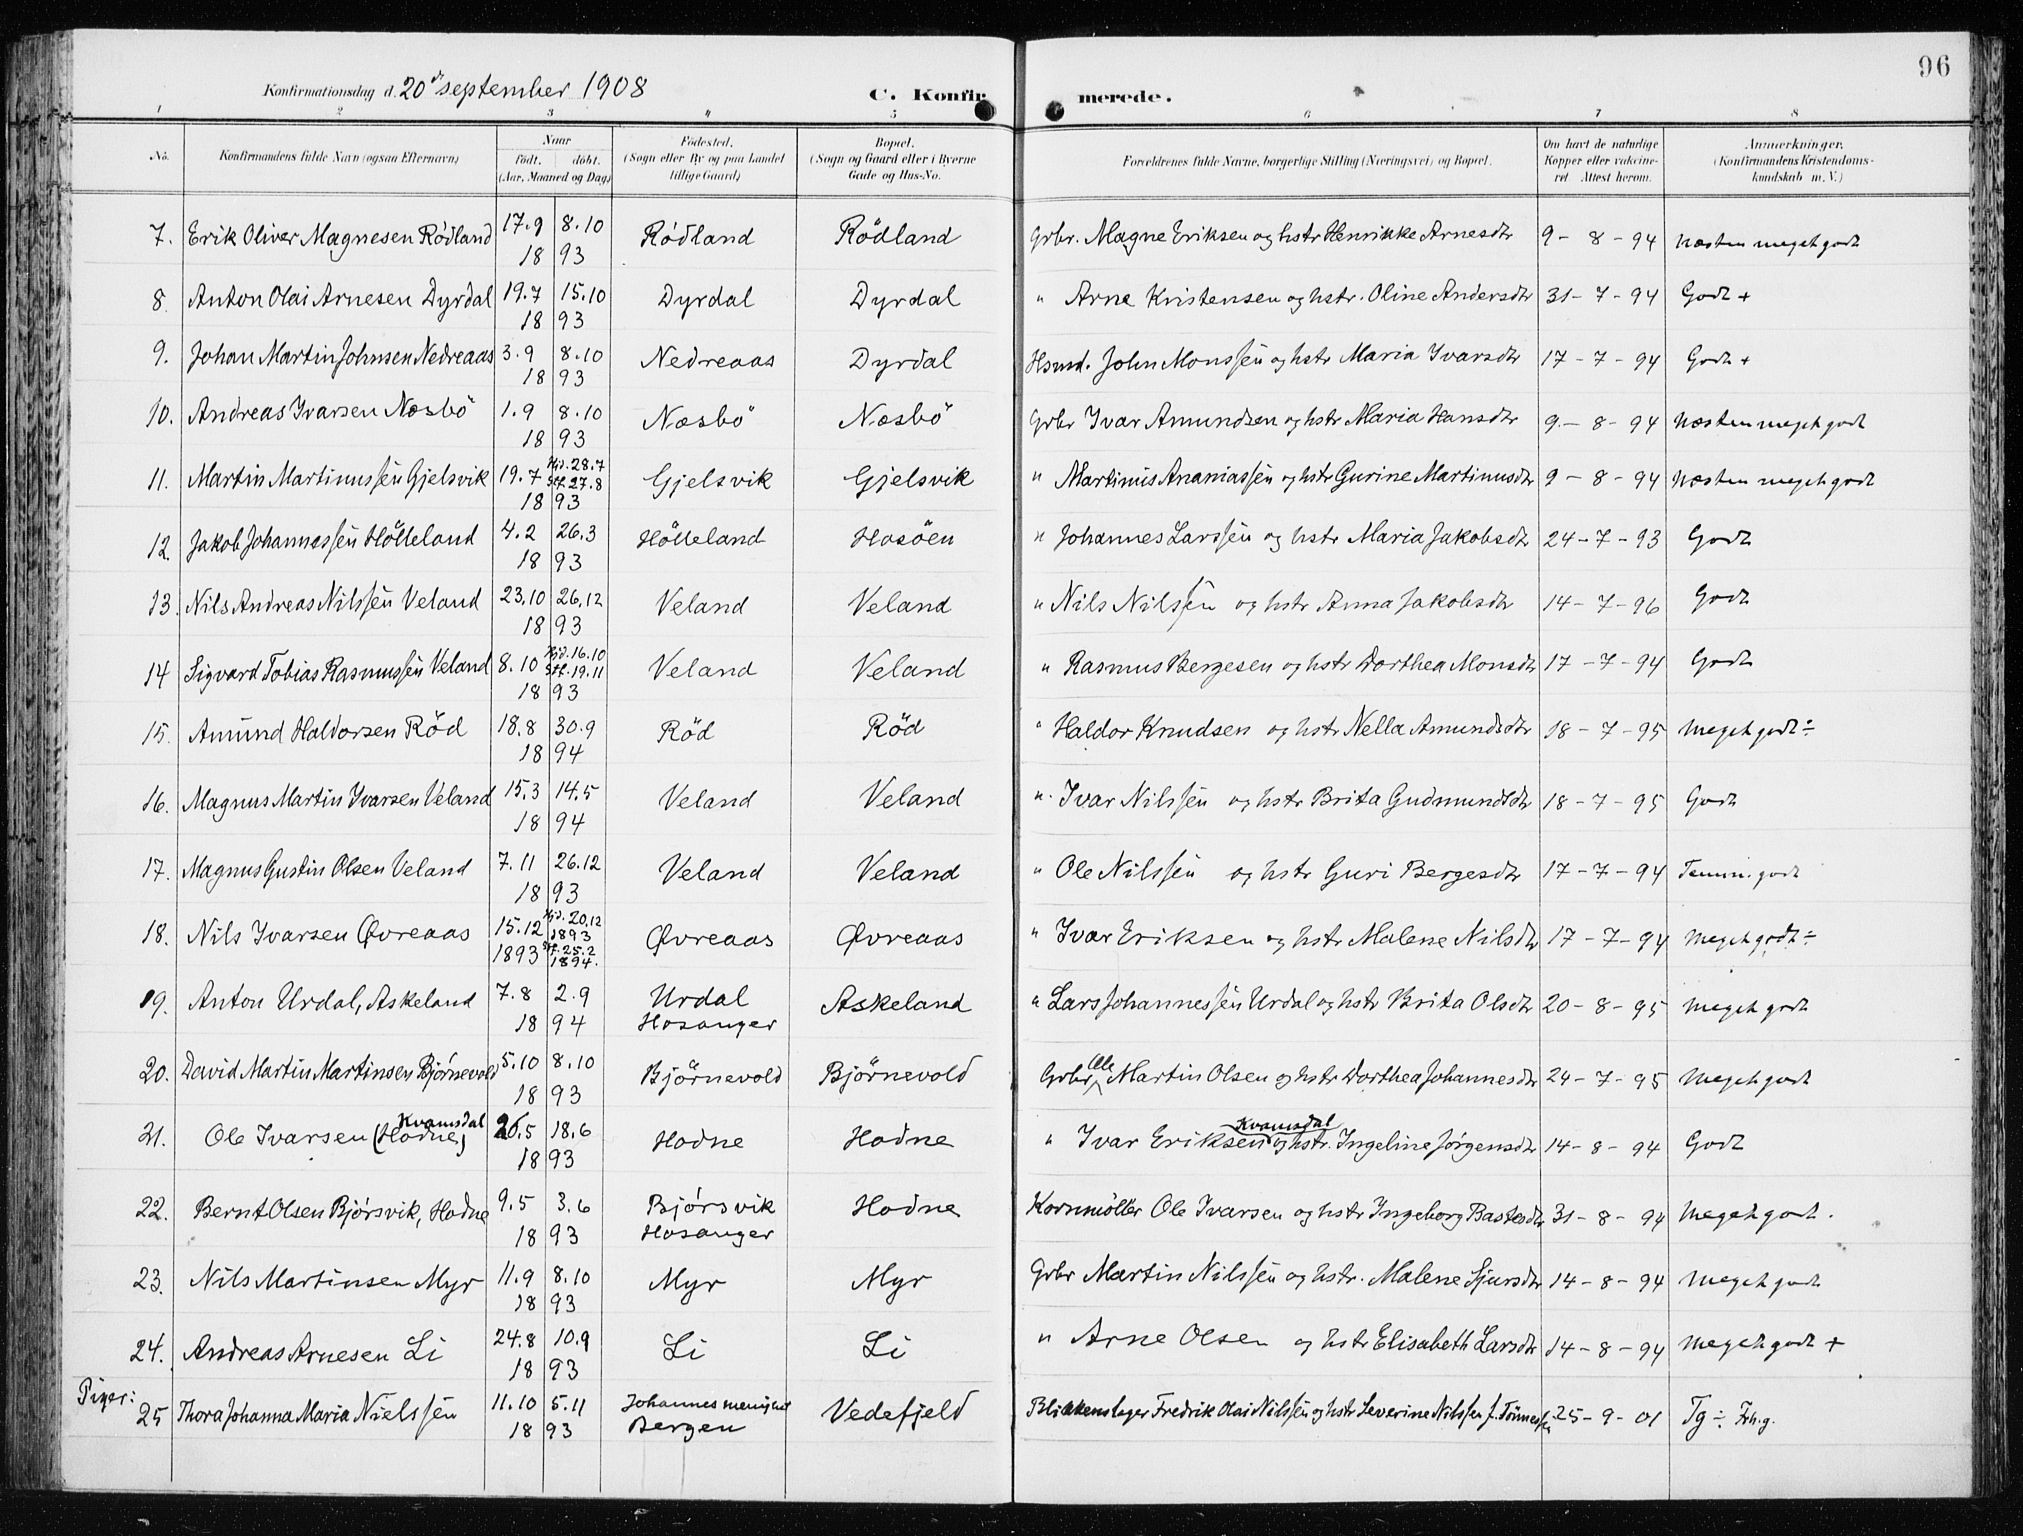 96
Konfirmationsdag d. 20de september 1908 C. Konfirmerede.
1 2 3 4 5 6 7 8
No. Konfirmandens fulde Navn (ogsaa Efternavn) Naar født. døbt. (Aar, Maaned og Dag) Fødested. (Sogn eller By og paa Landet tillige Gaard) Bopæl. (Sogn og Gaard eller i Byerne Gade og Hus-No. Forældrenes fulde Navne, borgerlige Stilling (Næringsvei) og Bopæl. Om havt de naturlige Kopper eller vakcineret Attest herom. Anmerkninger. (Konfirmandens Kristendomskundskab m. V.)
7. Erik Oliver Magnesen Rödland 17.9 8.10 1893 Rödland Rödland Grbr. Magne Eriksen og hstr Henrikke Arnesdtr 9-8-94 Næsten meget godt
8 Anton Olai Arnesen Dyrdal 19.7 15.10 1893 Dyrdal Dyrdal " Arne Kristensen og hstr. Oline Andersdtr 31-7-94 Godt +
9. Johan Martin Johnsen Nedreaas 3.9 8.10 1893 Nedreaas Dyrdal Hsmd. John Monssen og hstr Maria Ivarsdtr 17-7-94 Godt +
10. Andreas Ivarsen Næsbö 1.9 8.10 1893 Næsbö Næsbö Grbr Ivar Amundsen og hstr Maria Hansdtr 9-8-94 Næsten meget godt
11. Martin Martinussen Gjelsvik 19.7 Hjd. 28.7 Stf. 27.8 1893 Gjelsvik Gjelsvik " Martinus Ananiassen og hstr Gurine Martinusdtr 9-8-94 Næsten meget godt
12. Jakob Johannessen Hölleland 4.2 26.3 1893 Hölleland Hosöen " Johannes Larssen og hstr Maria Jakobsdtr 24-7-93 Godt
13. Nils Andreas Nilssen Veland 23.10 26.12 1893 Veland Veland " Nils Nilssen og hstr Anna Jakobsdtr 14-7-96 Godt
14 Sigvard Tobias Rasmussen Veland 8.10 Hjd. 16.10 Stf. 19.11 1893 Veland Veland " Rasmus Bergesen og hstr Dorthea Monsdtr 17-7-94 Godt
15. Amund Haldorsen Röd 18.8 30.9 1894 Röd Röd " Haldor Knudsen og hstr Nella Amundsdtr 18-7-95 Meget godt ÷
16. Magnus Martin Ivarsen Veland 15.3 14.5 1894 Veland Veland " Ivar Nilssen og hstr Brita Gudmundsdtr 18-7-95 Godt
17. Magnus Gustin Olsen Veland 7.11 26.12 1893 Veland Veland " Ole Nilssen og hstr Guri Bergesdtr 17-7-94 Temm. godt
18. Nils Ivarsen Øvreaas 15.12 1893 Hjd. 20.12 1893 Stf. 25.2 1894. Øvreaas Øvreaas " Ivar Eriksen og hstr Malene Nilsdtr 17-7-94 Meget godt ÷
19. Anton Urdal, Askeland 7.8 2.9 1894 Urdal Hosanger Askeland " Lars Johannessen Urdal og hstr Brita Olsdtr 20-8-95 Meget godt
20. David Martin Martinsen Bjørnevold 5.10 8.10 1893 Björnevold Björnevold Grbr Ole Martin Olsen og hstr Dorthea Johannesdtr 24-7-95 Meget godt
21. Ole Ivarsen (Hodne) Kvamsdal 26.5 18.6 1893 Hodne Hodne " Ivar Eriksen Kvamsdal og hstr. Ingeline Jørgensdtr 14-8-94 Godt
22. Bernt Olsen Bjørsvik, Hodne 9.5 3.6 1893 Bjørsvik Hosanger Hodne Kornmöller Ole Ivarsen og hstr Ingeborg 31-8-94 Meget godt.
23. Nils Martinsen Myr 11.9 8.10 1893 Myr Myr Grbr Martin Nilssen og hstr. Malene Sjursdtr 14-8-94 Meget godt
24. Andreas Arnesen Li 24.8 10.9 1893 Li Li " Arne Olsen og hstr Elisabeth Larsdtr 14-8-94 Meget godt +
Piger:
25 Thora Johanna Maria Nielssen 11.10 5.11 1893 Johannes menighet Bergen Vedefjeld Blikkenslager Fredrik Olai Nilssen og hstr Severine Nilssen f. Tönnessen 25-9-01 Tg ÷ Frh.g.